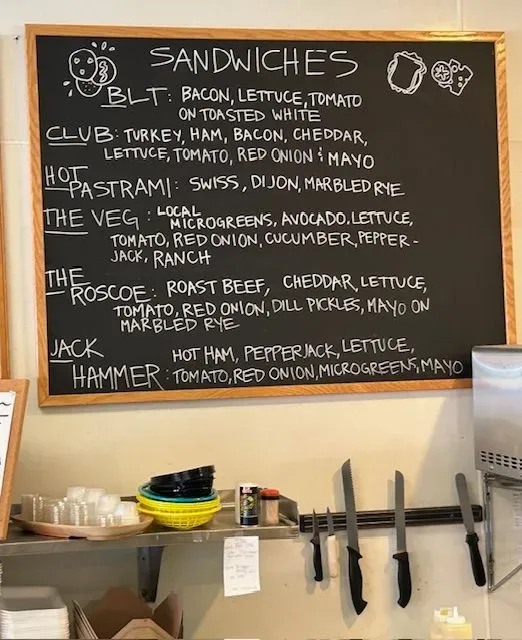 SANDWICHES
BLT: BACON, LETTUCE, TOMATO
ON TOASTED WHITE
CLUB: TURKEY, HAM, BACON, CHEDDAR,
LETTUCE, TOMATO, RED ONION & MAYO
HOT
PASTRAMI: SWISS, DIJON, MARBLED RYE
THE VEG: LOCAL
MICROGREENS, AVOCADO, LETTUCE,
TOMATO, RED ONION, CUCUMBER, PEPPER-
JACK, RANCH
THE
ROSCOE: ROAST BEEF, CHEDDAR, LETTUCE,
TOMATO, RED ONION, DILL PICKLES, MAYO ON
MARBLED RYE
JACK
HAMMER: HOT HAM, PEPPERJACK, LETTUCE,
TOMATO, RED ONION, MICROGREENS, MAYO